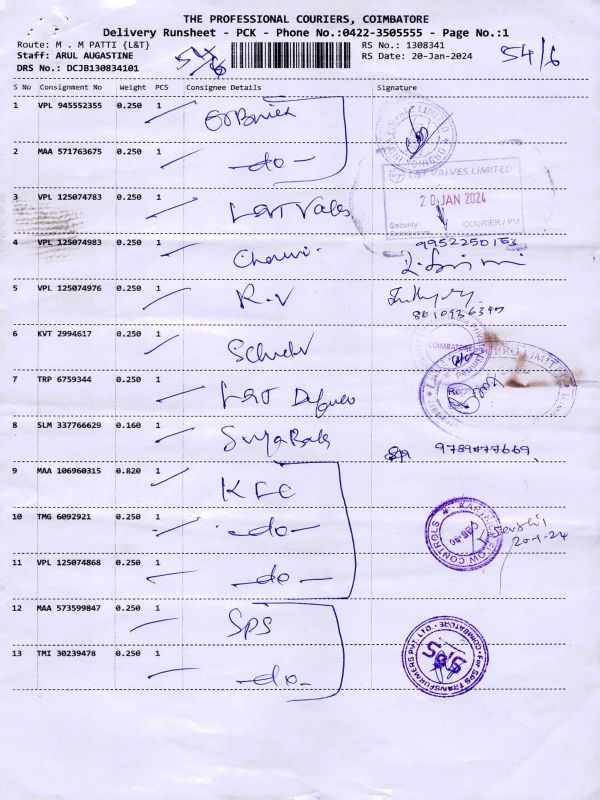 THE PROFESSIONAL COURIERS, COIMBATORE
Delivery Runsheet - PCK - Phone No.:0422-3505555 - Page No.:1
Route: M . M PATTI {L&T} RS No.: 1308341
Staff: ARUL AUGASTINE RS Date: 20-Jan-2024 54/6
DRS No.: DCJB130834101
S No Consignment No Weight PCS Consignee Details Signature
1 VPL 945552355 0.250 1
2 MAA 571763675 0.250 1 -do-
L&T VALVES LIMITED
3 VPL 125074783 0.250 1 L&T Valves 20 JAN 2024
Security COURIER / PM
4 VPL 125074983 0.250 1 9952250153
5 VPL 125074976 0.250 1 R.V
6 KVT 2994617 0.250 1 COIMBATORE
7 TRP 6759344 0.250 1 L&T
8 SLM 337766629 0.160 1
9 MAA 106960315 0.820 1 KFC
10 TMG 6092921 0.250 1 -do-
FLOW CONTROLS
20-1-24
11 VPL 125074868 0.250 1 -do-
12 MAA 573599847 0.250 1 SPS
For SPS TRANSFORMERS PVT. LTD. COIMBATORE
13 TMI 30239478 0.250 1 -do-